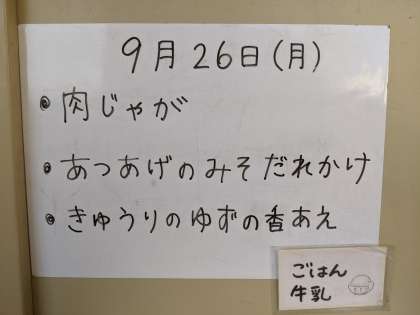 9月26日(月)
肉じゃが
あつあげのみそだれかけ
きゅうりのゆずの香あえ
ごはん
牛乳